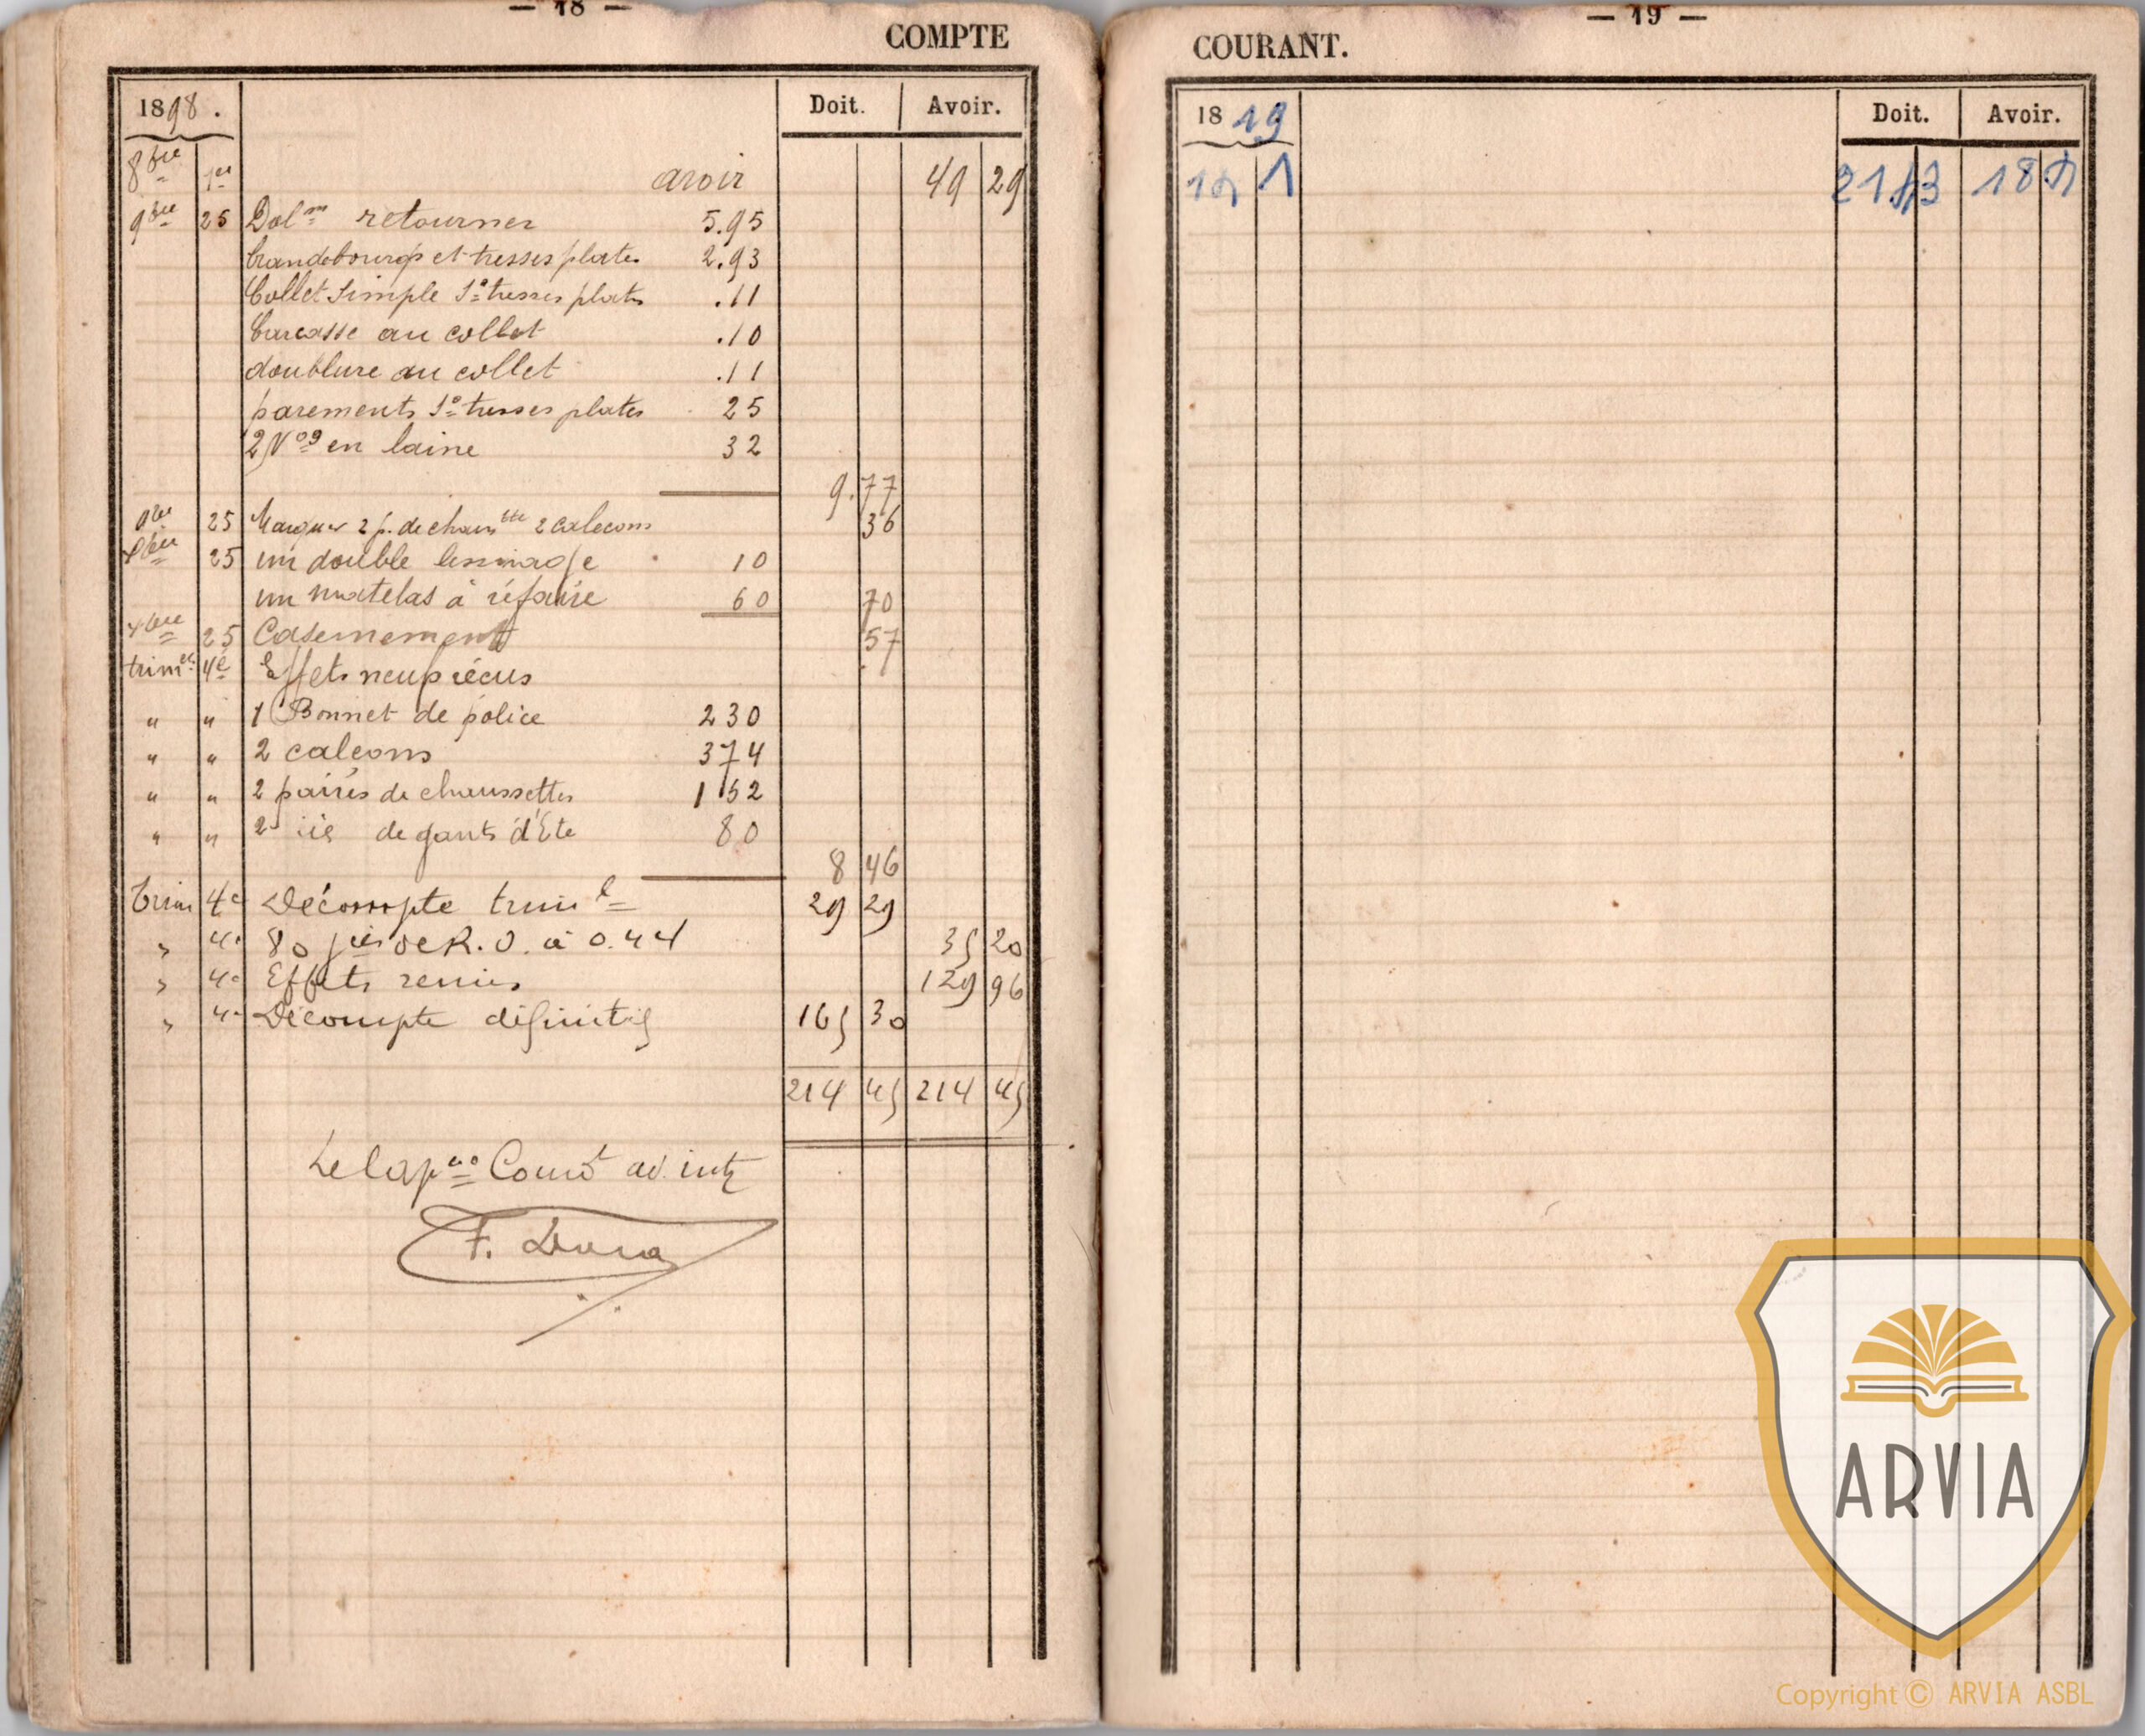 — 18 —
COMPTE
1898.
Doit. Avoir.
8bre 1er avoir 49 29
9bre 25 Dolm retourner 5.95
brandebourgs et tresses plates 2.93
Collet simple So tresses plates .11
Carcasse au collet .10
doublure au collet .11
parements So tresses plates 25
2 Nos en laine 32
9.77
25 Marquer 2 p. de chaus 2 calecons 36
25 un double 10
un matelas à réfaire 60 70
25 Casernement 57
trim 4e Effets neufs récus
" " 1 Bonnet de police 230
" " 2 caleçons 374
" " 2 paires de chaussettes 152
" " 2 de gants d'Eté 80
8 46
Trim 4e Décompte trim l 29 29
" 4e 80 jrs de R.O. à 0.44 35 20
" 4e Effets remis 129 96
" 4e Décompte définitif 165 30
214 45 214 45
Le Cap Com ad. int
F.
— 19 —
COURANT.
18 19
Doit. Avoir.
1
ARVIA
Copyright © ARVIA ASBL